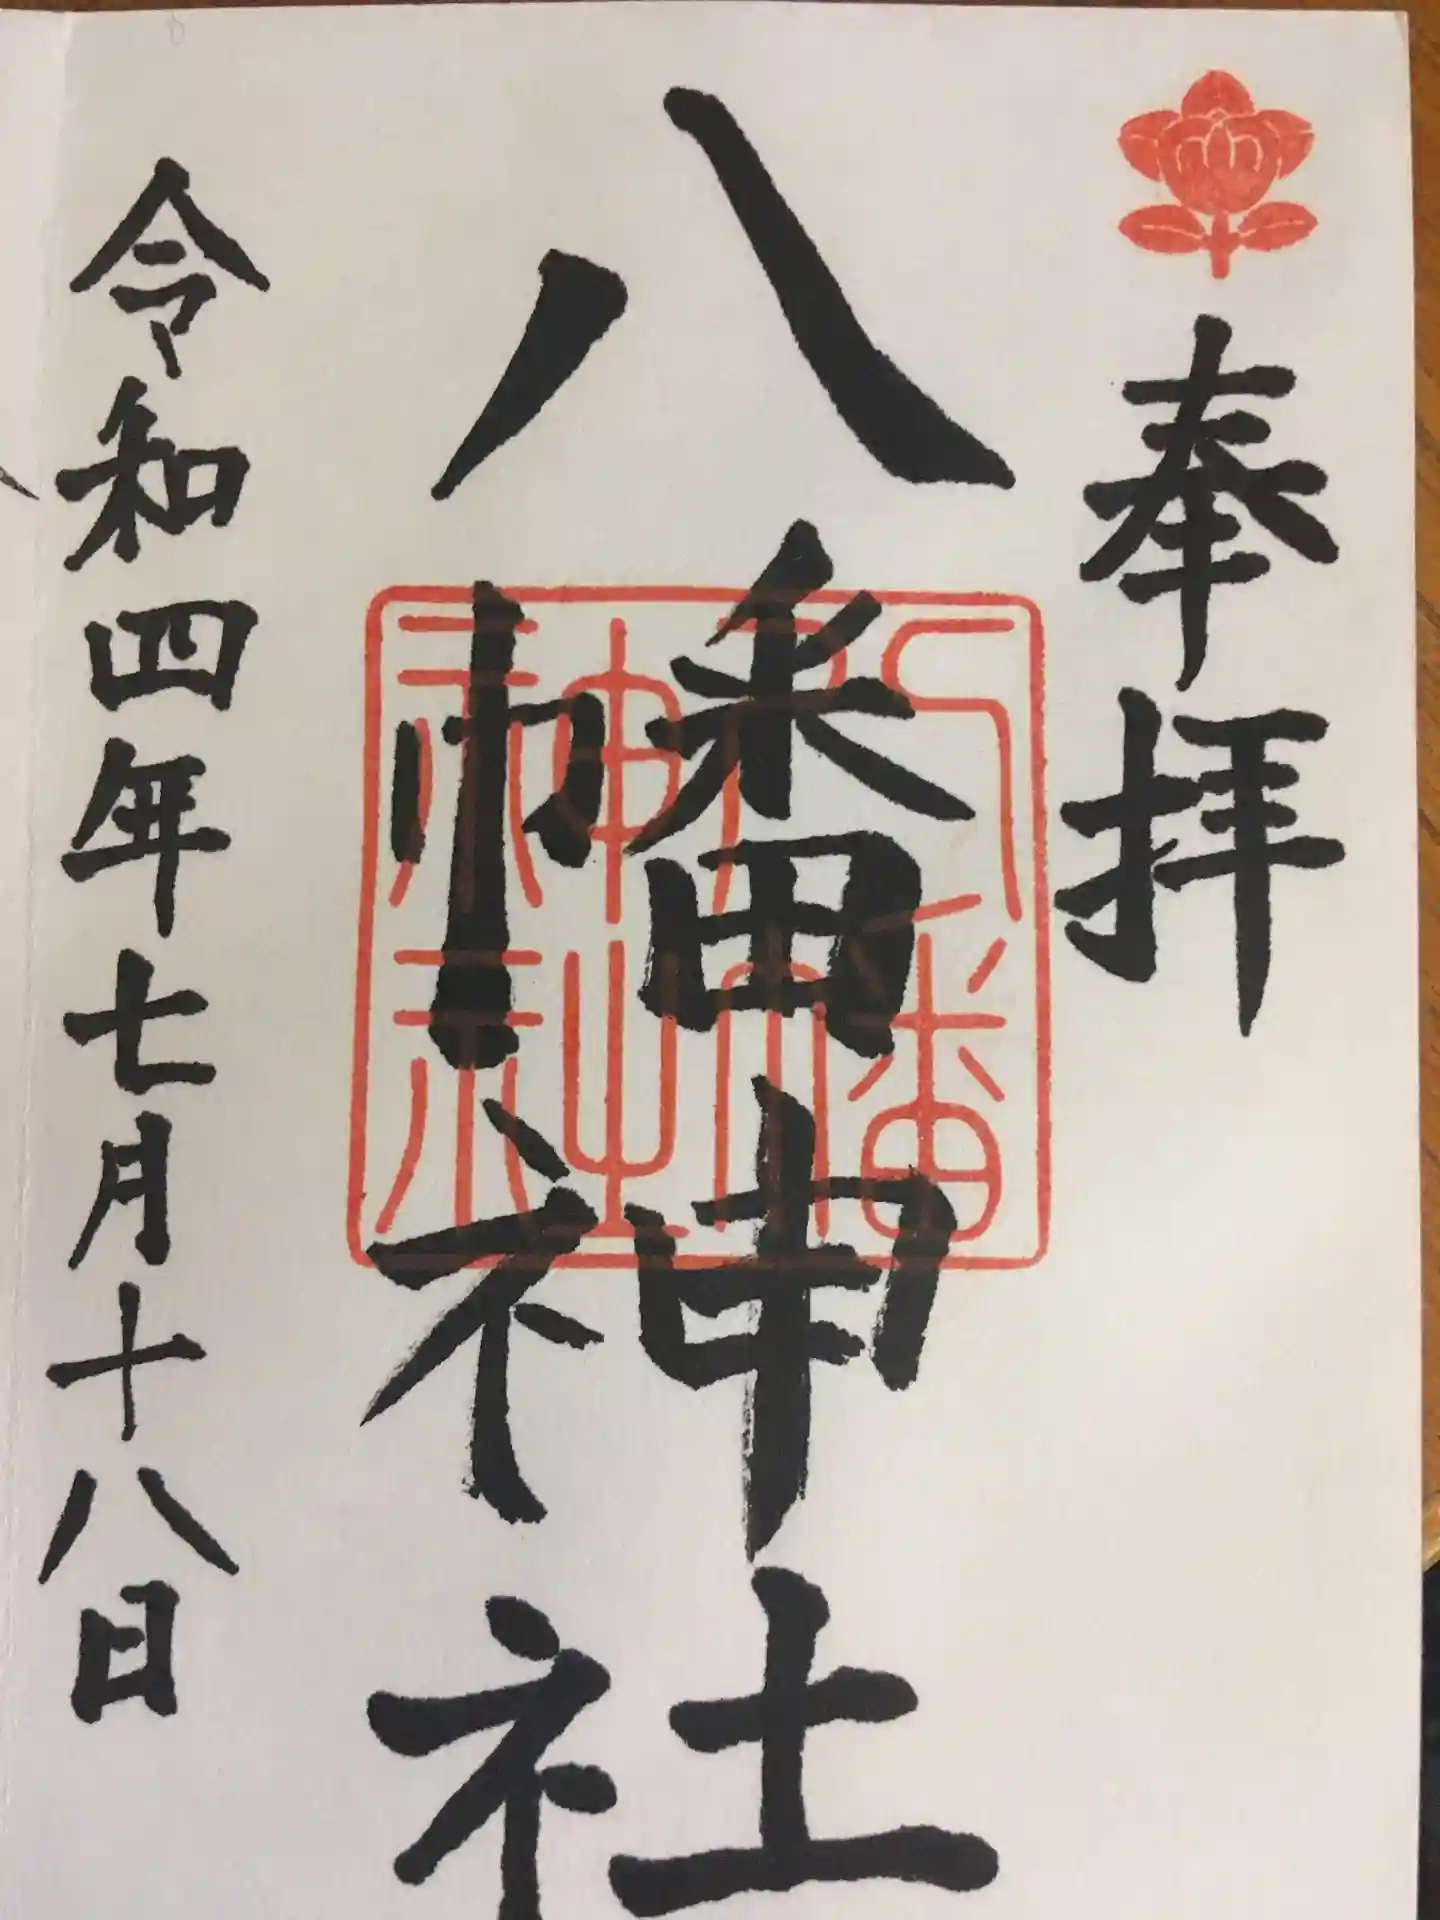 奉拝
八幡神社
八幡神社
令和四年七月十八日